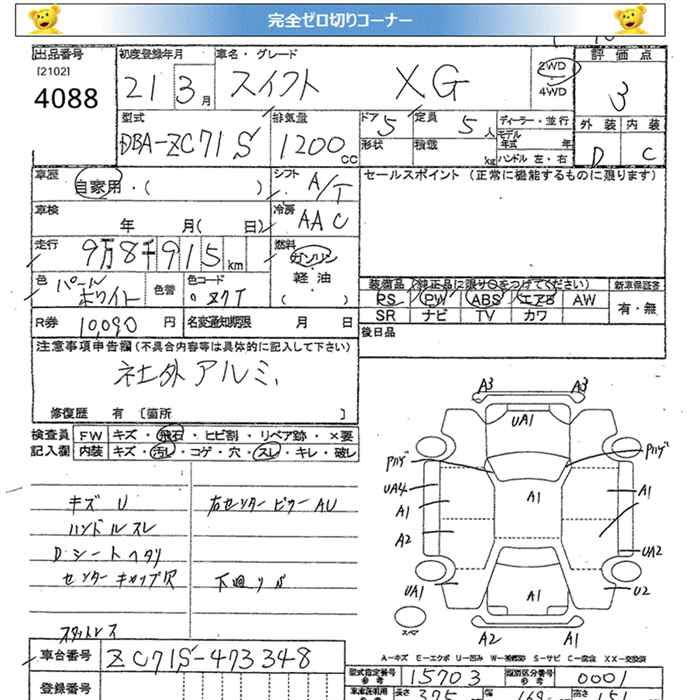 完全ゼロ切りコーナー
出品番号 初度登録年月 車名・グレード 評価点
[2102]
4088 21 3月 スイフト XG 2WD 4WD 3
型式 排気量 ドア 定員 ディーラー・並行 外装 内装
DBA-ZC71S 1200cc 5 5人 モデル年式 年 D C
形状 積載 kg ハンドル 左・右
車歴 自家用・( ) シフト A/T セールスポイント (正常に機能するものに限ります)
車検 年 月( 日) 冷房 AAC
走行 9万8千915km 燃料 ガソリン 軽油 ( )
色 パールホワイト 色替 色コード
装備品 (純正品に限り○をつけてください) 新車保証書
PS PW ABS エアB AW 有・無
SR ナビ TV カワ
R券 10,090円 名変通知期限 月 日 後日品
注意事項申告欄 (不具合内容等は具体的に記入して下さい)
社外アルミ
修復歴 有 [箇所 ]
検査員 FW キズ・飛石・ヒビ割・リペア跡・×要
記入欄 内装 キズ・汚レ・コゲ・穴・スレ・キレ・破レ
キズ U 右センターピラー AU
ハンドルスレ
Dシートヘタリ
センターキャップ欠 下廻りS
スタットレス
A3 A3
UA1
Pハゲ Pハゲ
UA4 A1 A1 A1
A2 UA2
UA1 A1 U2
スペア
A2 A1
A-キズ E-エクボ U-凹み W-補修跡 S-サビ C-腐食 XX-交換済
車台番号 ZC71S-473348
型式指定番号 15703 類別区分番号 0001
登録番号
長さ 375 幅 169 高さ